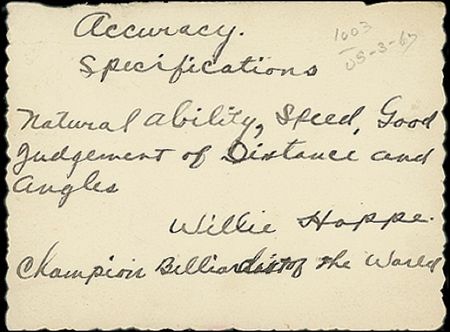 Accuracy.
1003
US-3-67
Specifications
Natural ability, Speed, Good
Judgement of Distance and
Angles
Willie Hoppe.
Champion Billiardist of the World